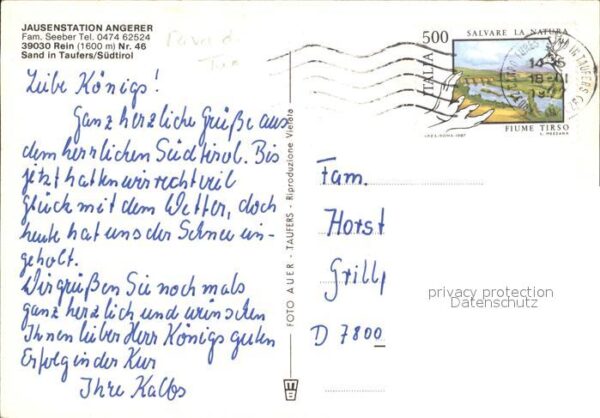 JAUSENSTATION ANGERER
Fam. Seeber Tel. 0474 62524
39030 Rein (1600 m) Nr. 46
Sand in Taufers/Südtirol
Liebe Königs!
Ganz herzliche Grüße aus
dem herrlichen Südtirol. Bis
jetzt hatten wir recht viel
Glück mit dem Wetter, doch
heute hat uns der Schnee ein-
geholt.
Wir grüßen Sie noch mals
ganz herzlich und wünschen
Ihnen lieber Herr Königs guten
Erfolg in der Kur
Ihre Kalbs
FOTO AUER - TAUFERS - Riproduzione Vietata
500
SALVARE LA NATURA
ITALIA
FIUME TIRSO
I.P.Z.S.-ROMA-1987
Fam.
Horst
Grill
D 7800
privacy protection
Datenschutz